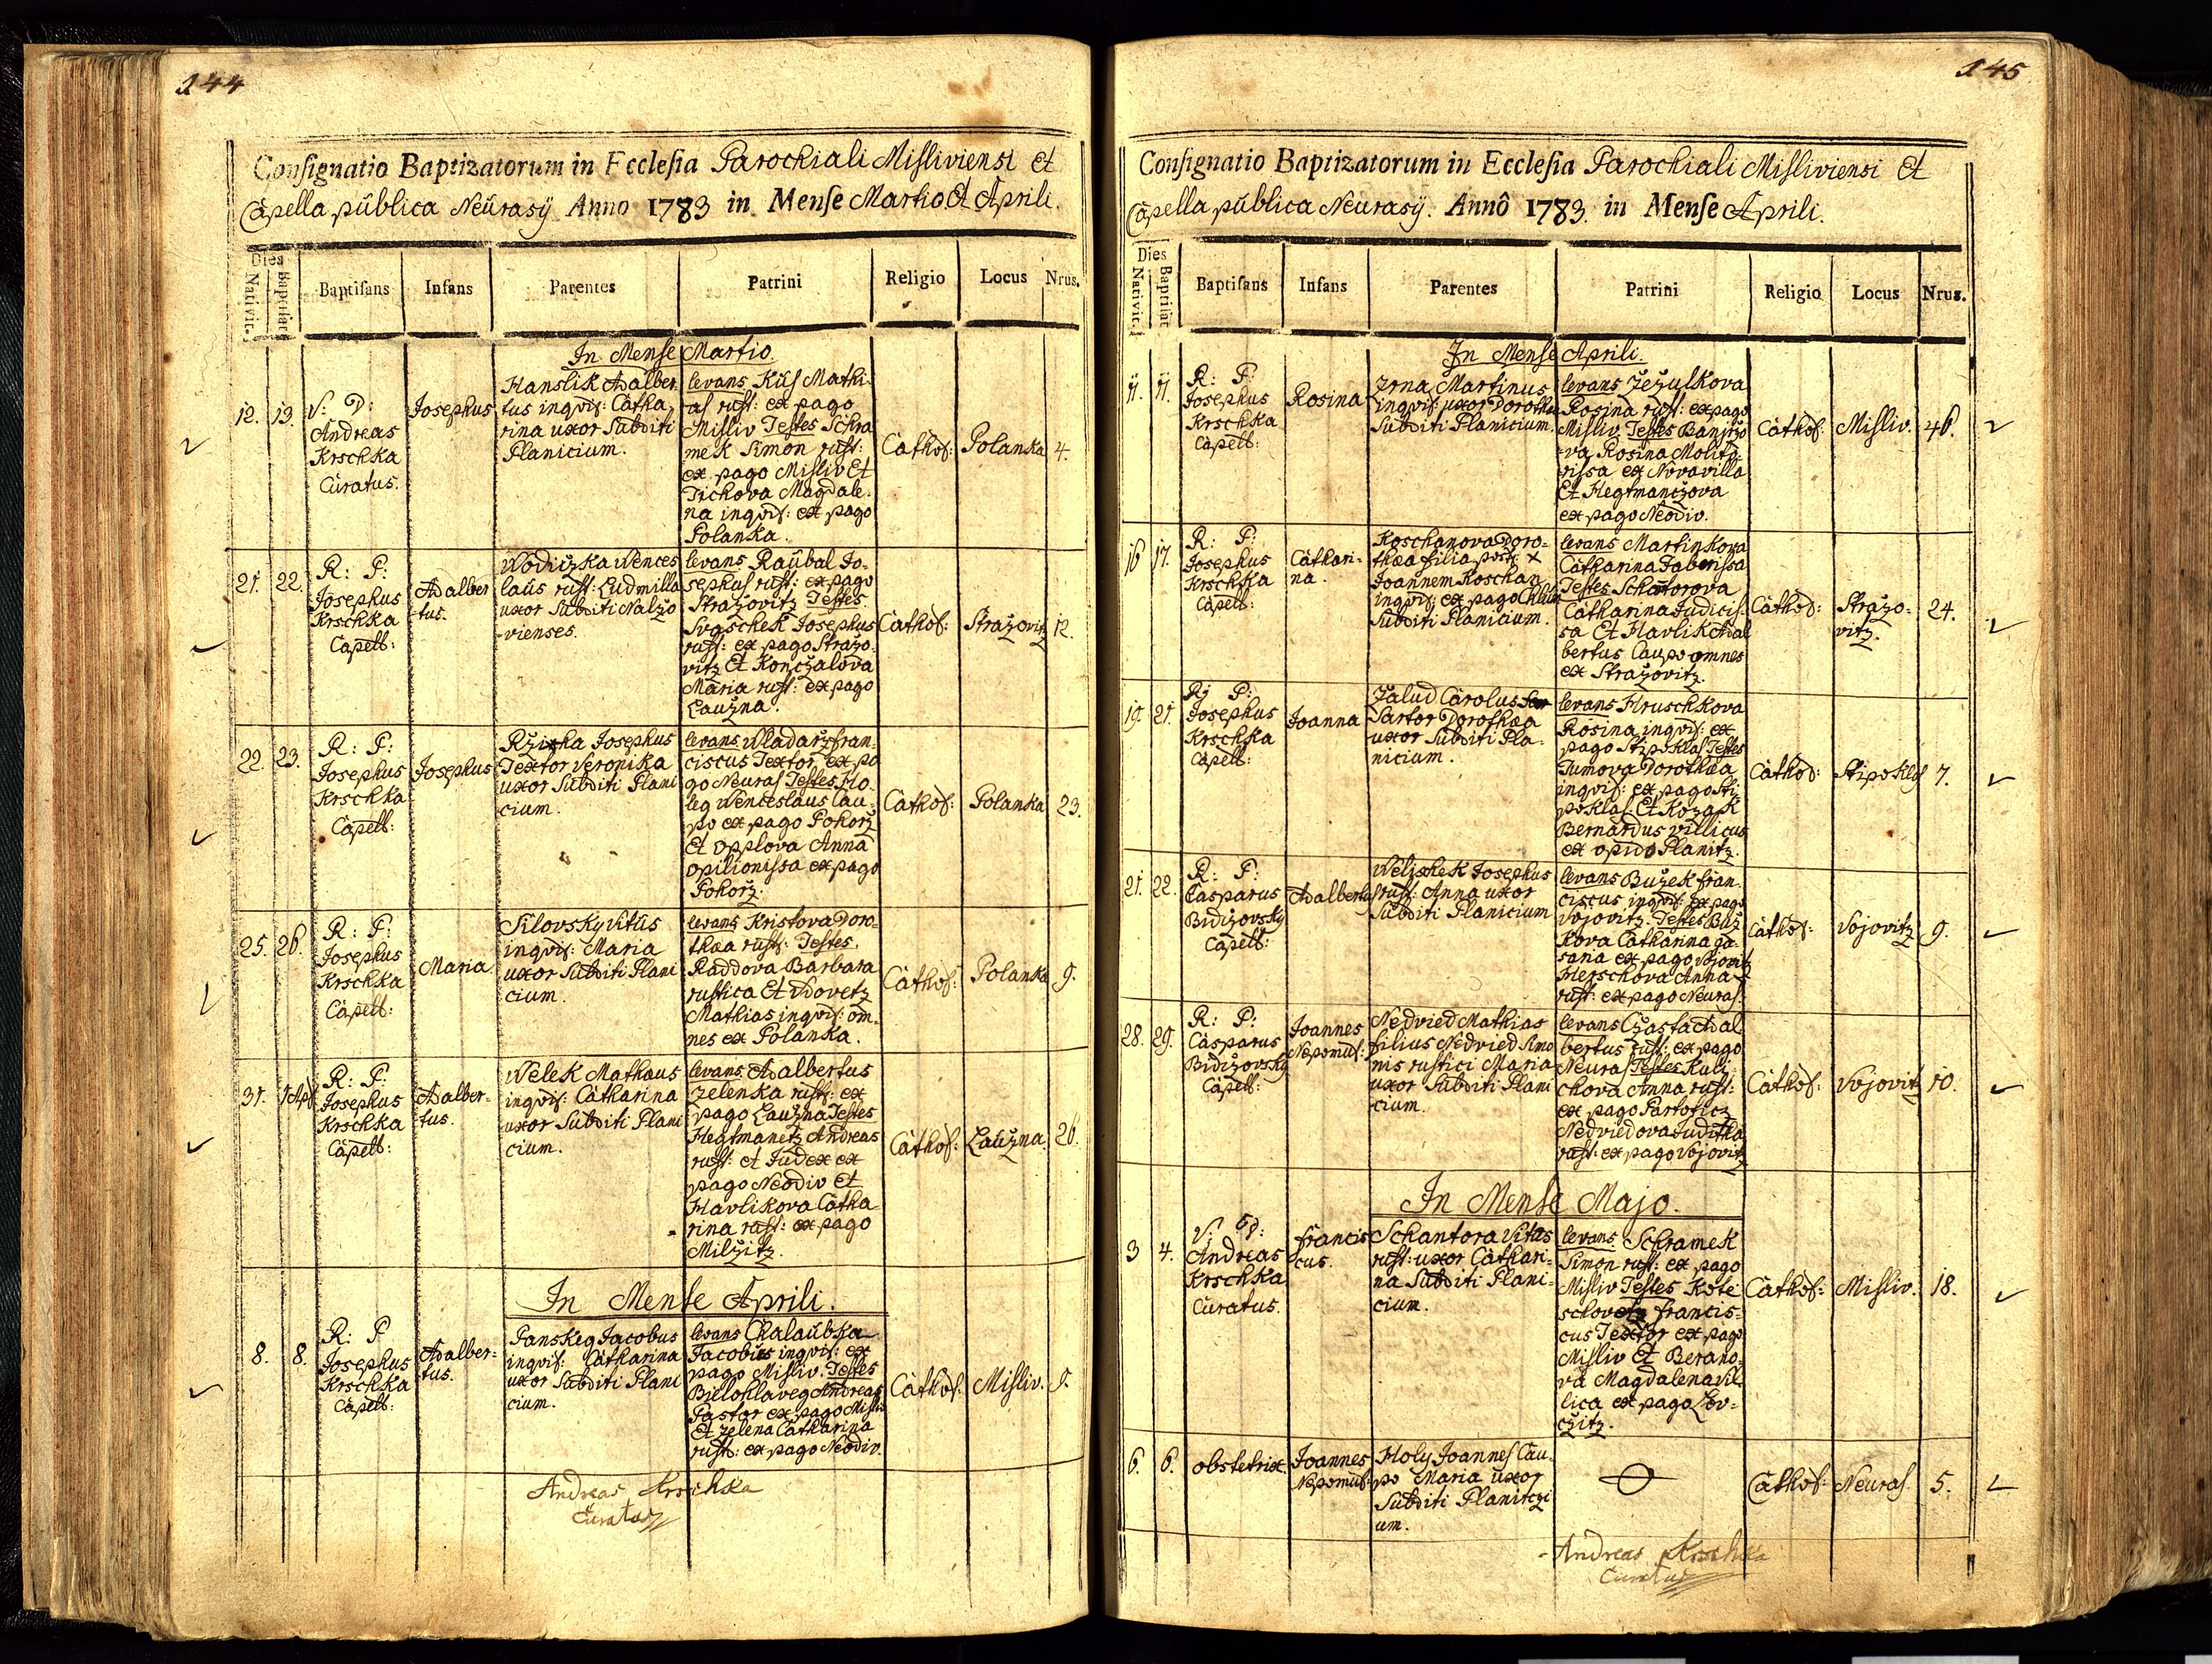 144
Consignatio Baptizatorum in Ecclesia Parochiali Misliviensi Et
Capella publica Neurasij Anno 1783 in Mense Martio Et Aprili.
Dies
Nativit. Baptisat Baptisans Infans Parentes Patrini Religio Locus Nrus.
In Mense Martio.
12. 13.
V: D:
Andreas
Krschka
Curatus.
Josephus
Hanslik Adalber
tus inqvis: Catha
rina uxor Subditi
Planicium.
levans Kus Mathi
as rust: ex pago
Misliv Testes Schra
mek Simon rust:
ex pago Misliv Et
Tichova Magdale
na inqvis: ex pago
Polanka.
Cathol: Polanka 4.
21. 22.
R: P:
Josephus
Krschka
Capell:
Adalber
tus.
Wodiczka Wences
laus rust: Ludmilla
uxor Subditi Nalžo
vienses.
levans Raubal Jo-
sephus rust: ex pago
Stražovitz Testes
Svaschek Josephus
rust: ex pago Stražo
vitz Et Konczalova
Maria rust: ex pago
Laužna.
Cathol: Stražovitz 12.
22. 23.
R: P:
Josephus
Krschka
Capell:
Josephus
Textor Veronika
uxor Subditi Plani
cium.
levans Wladarz fran-
ciscus Textor ex pa
go Neuras Testes Ho
leg Wenceslaus Cau-
po ex pago Pohorz
Et Opplova Anna
opilionissa ex pago
Pohorz.
Cathol: Polanka 23.
25. 26.
R: P:
Josephus
Krschka
Capell:
Maria
Silovsky Vitus
inqvis: Maria
uxor Subditi Plani
cium.
levans Kristova Doro-
thæa rust: Testes.
Raddova Barbara
rustica Et Vdovetz
Mathias inqvis: om-
nes ex Polanka.
Cathol: Polanka 9.
31. 1 Apr
R: P:
Josephus
Krschka
Capell:
Adalber-
tus.
Welek Mathæus
inqvis: Catharina
uxor Subditi Plani
cium.
levans Adalbertus
Zelenka rust: ex
pago Laužna Testes
Hegtmanetz Andreas
rust: et Judex ex
pago Neodiv Et
Havlikova Catha-
rina rust: ex pago
Milžitz.
Cathol: Laužna. 26.
In Mense Aprili.
8. 8.
R: P
Josephus
Krschka
Capell:
Adalber-
tus.
Panskeg Jacobus
inqvis: Catharina
uxor Subditi Plani
cium.
levans Chalaubka
Jacobus inqvis: ex
pago Misliv. Testes
Bielohlaveg Andreas
Pastor ex pago Misliv
Et Zelena Catharina
rust: ex pago Neodiv.
Cathol: Misliv. 9.
Andreas Krschka
Curatus
145
Consignatio Baptizatorum in Ecclesia Parochiali Misliviensi Et
Capella publica Neurasij. Annô 1783. in Mense Aprili.
Dies
Nativit. Baptisat Baptisans Infans Parentes Patrini Religio Locus Nrus.
In Mense Aprili.
11. 11.
R: P:
Josephus
Krschka
Capell:
Rosina
Zrna Martinus
inqvis: uxor Dorothea
Subditi Planicium.
levans Žežulkova
Rosina rust: ex pago
Misliv Testes Banjržo
va Rosina Molito-
rissa ex Nova villa
Et Hegtmanczova
ex pago Neodiv.
Cathol: Misliv. 46.
16 17.
R: P:
Josephus
Krschka
Capell:
Cathari-
na.
Koschanova Doro-
thæa filia post: x
Joannem Koschan
inqvis: ex pago
Subditi Planicium.
levans Martinkova
Catharina Fabrissa
Testes Schantorova
Catharina Judicis-
sa Et Havlik Adal
bertus Caupo omnes
ex Stražovitz.
Cathol: Stražo-
vitz. 24.
19. 21.
R: P:
Josephus
Krschka
Capell:
Joanna
Žalud Carolus
Sartor Dorothæa
uxor Subditi Pla-
nicium.
levans Hruschkova
Rosina inqvis: ex
pago Stipoklas Testes
Tumova Dorothæa
inqvis: ex pago Sti
poklas Et Kozak
Bernardus villicus
ex opido Planitz.
Cathol: Stipoklas 7.
21. 22.
R: P:
Casparus
Bidižovsky
Capell:
Adalbertus
Welischek Josephus
rust: Anna uxor
Subditi Planicium
levans Bužek fran-
ciscus inqvis: ex pago
Vojovitz. Testes Buž
kova Catharina ga-
saria ex pago Vojovitz
Herschova Anna
rust: ex pago Neuras.
Cathol: Vojovitz 9.
28. 29.
R: P:
Casparus
Bidižovsky
Capell:
Joannes
Nepomus:
Nedvied Mathias
filius Nedvied Simo
nis rustici Maria
uxor Subditi Plani
cium.
levans Czasta Adal
bertus rust: ex pago
Neuras Testes Kuli
chova Anna rust:
ex pago Partoticz
Nedviedova Juditha
rust: ex pago Vojovitz
Cathol: Vojovitz 10.
In Mense Majo.
3 4.
V: D:
Andreas
Krschka
Curatus.
francis
cus.
Schantora Vitus
rust: uxor Cathari-
na Subditi Plani-
cium.
levans Schramek
Simon rust: ex pago
Misliv Testes Kote
schovetz francis-
cus Textor ex pago
Misliv Et Berano-
va Magdalena vil-
lica ex pago Lov-
czitz.
Cathol: Misliv. 18.
6. 6.
obstetrix.
Joannes
Nepomus:
Holy Joannes Cau-
po Maria uxor
Subditi Planitzi
um.
Cathol: Neuras. 5.
Andreas Krschka
Curatus